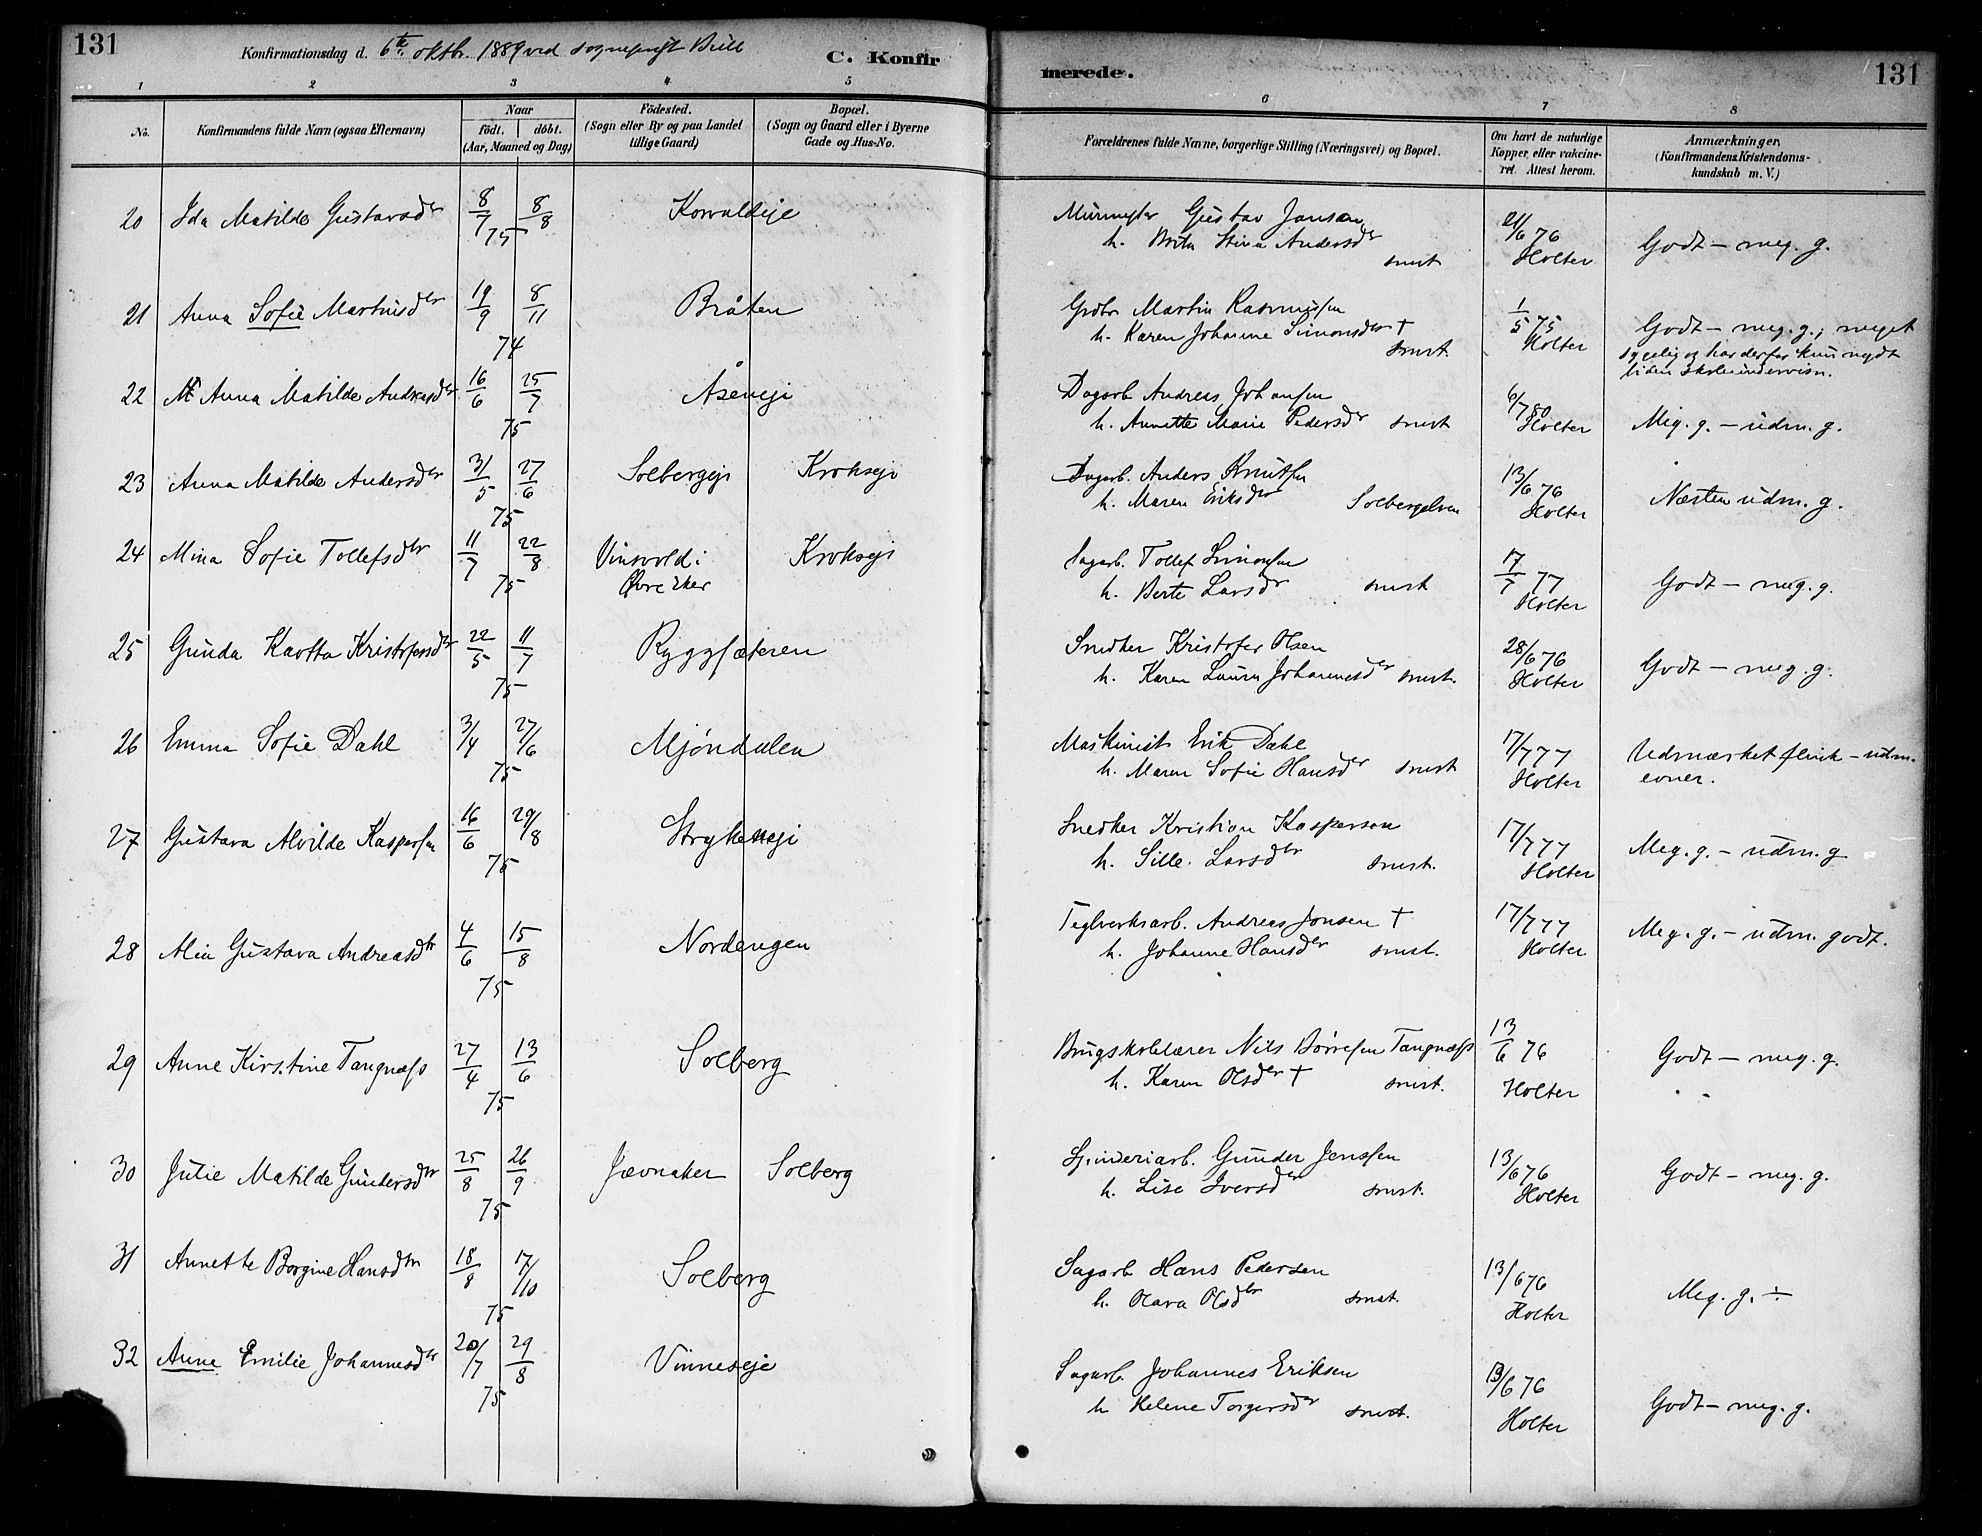 131
Konfirmationsdag d. 6te oktbr. 1889 ved sogneprest
C. Konfirmerede.
131
1 2 3 4 5 6 7 8
No.
Konfirmandens fulde Navn (ogsaa Efternavn)
Naar
födt. döbt.
(Aar, Maaned og Dag)
Födested.
(Sogn eller By og paa Landet
tillige Gaard)
Bopæl.
(Sogn og Gaard eller i Byerne
Gade og Hus-No.
Forældrenes fulde Navne, borgerlige Stilling (Næringsvei) og Bopæl.
Om havt de naturlige
Kopper, eller vakcine-
ret. Attest herom.
Anmærkninger,
(Konfirmandens Kristendoms-
kundskab m. V.)
20 Ida Matilde Gustavsdtr 8/7 8/8 75 Korvaldeje Murmester Gustav Jansen 21/6 76
h. Brita Stina Andersdtr smst. Holter Godt – meg. g.
21 Anna Sofie Martinsdtr 19/9 8/11 74 Bråten Grdbr. Martin Rasmussen 1/5 75
h. Karen Johanne Simonsdtr † smst. Holter Godt – meg. g.; meget
sygelig og har derfor kun nydt
liden skoleundervisn.
22 Anna Matilde Andreasdtr 16/6 25/7 75 Åseneje Dagarb. Andreas Johansen 6/7 80
h. Annette Marie Pedersdtr smst. Holter Meg. g. – udm. g.
23 Anna Matilde Andersdtr 31/5 27/6 75 Solbergeje Krokseje Dagarb. Anders Knutsen 13/6 76
h. Maren Eriksdtr Solbergelven Holter Næsten udm. g.
24 Mina Sofie Tollefsdtr 11/7 22/8 75 Vinsvold i Krokseje Sagarb. Tollef Simonsen 17/7 77
Øvre Eker h. Berte Larsdtr smst. Holter Godt – meg. g.
25 Gunda Kaotta Kristofersdtr 22/5 11/7 75 Ryggsæteren Snedker Kristofer Olsen 28/6 76
h. Karen Laura Johannesdtr smst. Holter Godt – meg. g.
26 Emma Sofie Dahl 3/4 27/6 75 Mjöndalen Maskinist Erik Dahl 17/7 77
h. Maren Sofie Hansdtr smst. Holter Udmærket flink – udm.
evner.
27 Gustava Alvilde Kaspersen 16/6 29/8 75 Strykeneje Snedker Kristian Kaspersen 17/7 77
h. Sille Larsdtr smst. Holter Meg. g. – udm. g
28 Alia Gustava Andreasdtr 4/6 15/8 75 Nordengen Teglverksarb. Andreas Jonsen † 17/7 77
h. Johanne Hansdtr smst. Holter Meg. g. – udm. godt.
29 Anne Kirstine Tangnæss 27/4 13/6 75 Solberg Brugsskolelærer Nils Börresen Tangnæss 13/6 76
h. Karen Olsdtr † smst. Holter Godt – meg. g.
30 Julie Matilde Gundersdtr 25/8 26/9 75 Jævnaker Solberg Spinderiarb. Gunder Jenssen 13/6 76
h. Lise Iversdtr smst. Holter Godt – meg. g.
31 Annette Borgine Hansdtr 18/8 17/10 75 Solberg Sagarb. Hans Pedersen 13/6 76
h. Olava Olsdtr smst. Holter Meg. g. ÷
32 Anna Emilie Johannesdtr 20/7 29/8 75 Vinneseje Sagarb. Johannes Eriksen 13/6 76
h. Helene Torgersdtr smst. Holter Godt – meg. g.